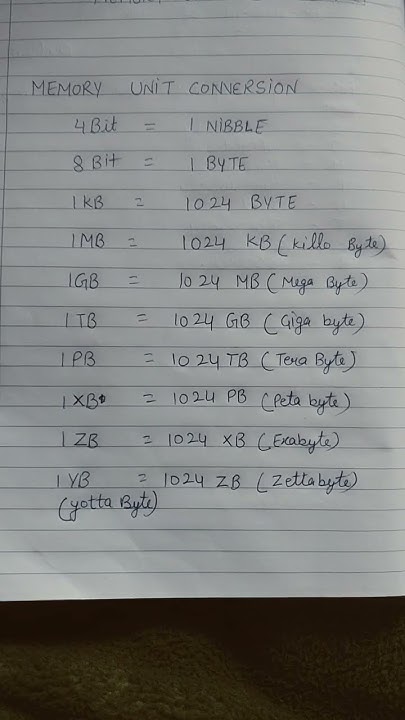 MEMORY UNIT CONVERSION
4 Bit = 1 NIBBLE
8 Bit = 1 BYTE
1 KB = 1024 BYTE
1 MB = 1024 KB (Killo Byte)
1 GB = 1024 MB (Mega Byte)
1 TB = 1024 GB (Giga byte)
1 PB = 1024 TB (Tera Byte)
1 XB = 1024 PB (Peta byte)
1 ZB = 1024 XB (Exabyte)
1 YB = 1024 ZB (Zettabyte)
(yotta Byte)